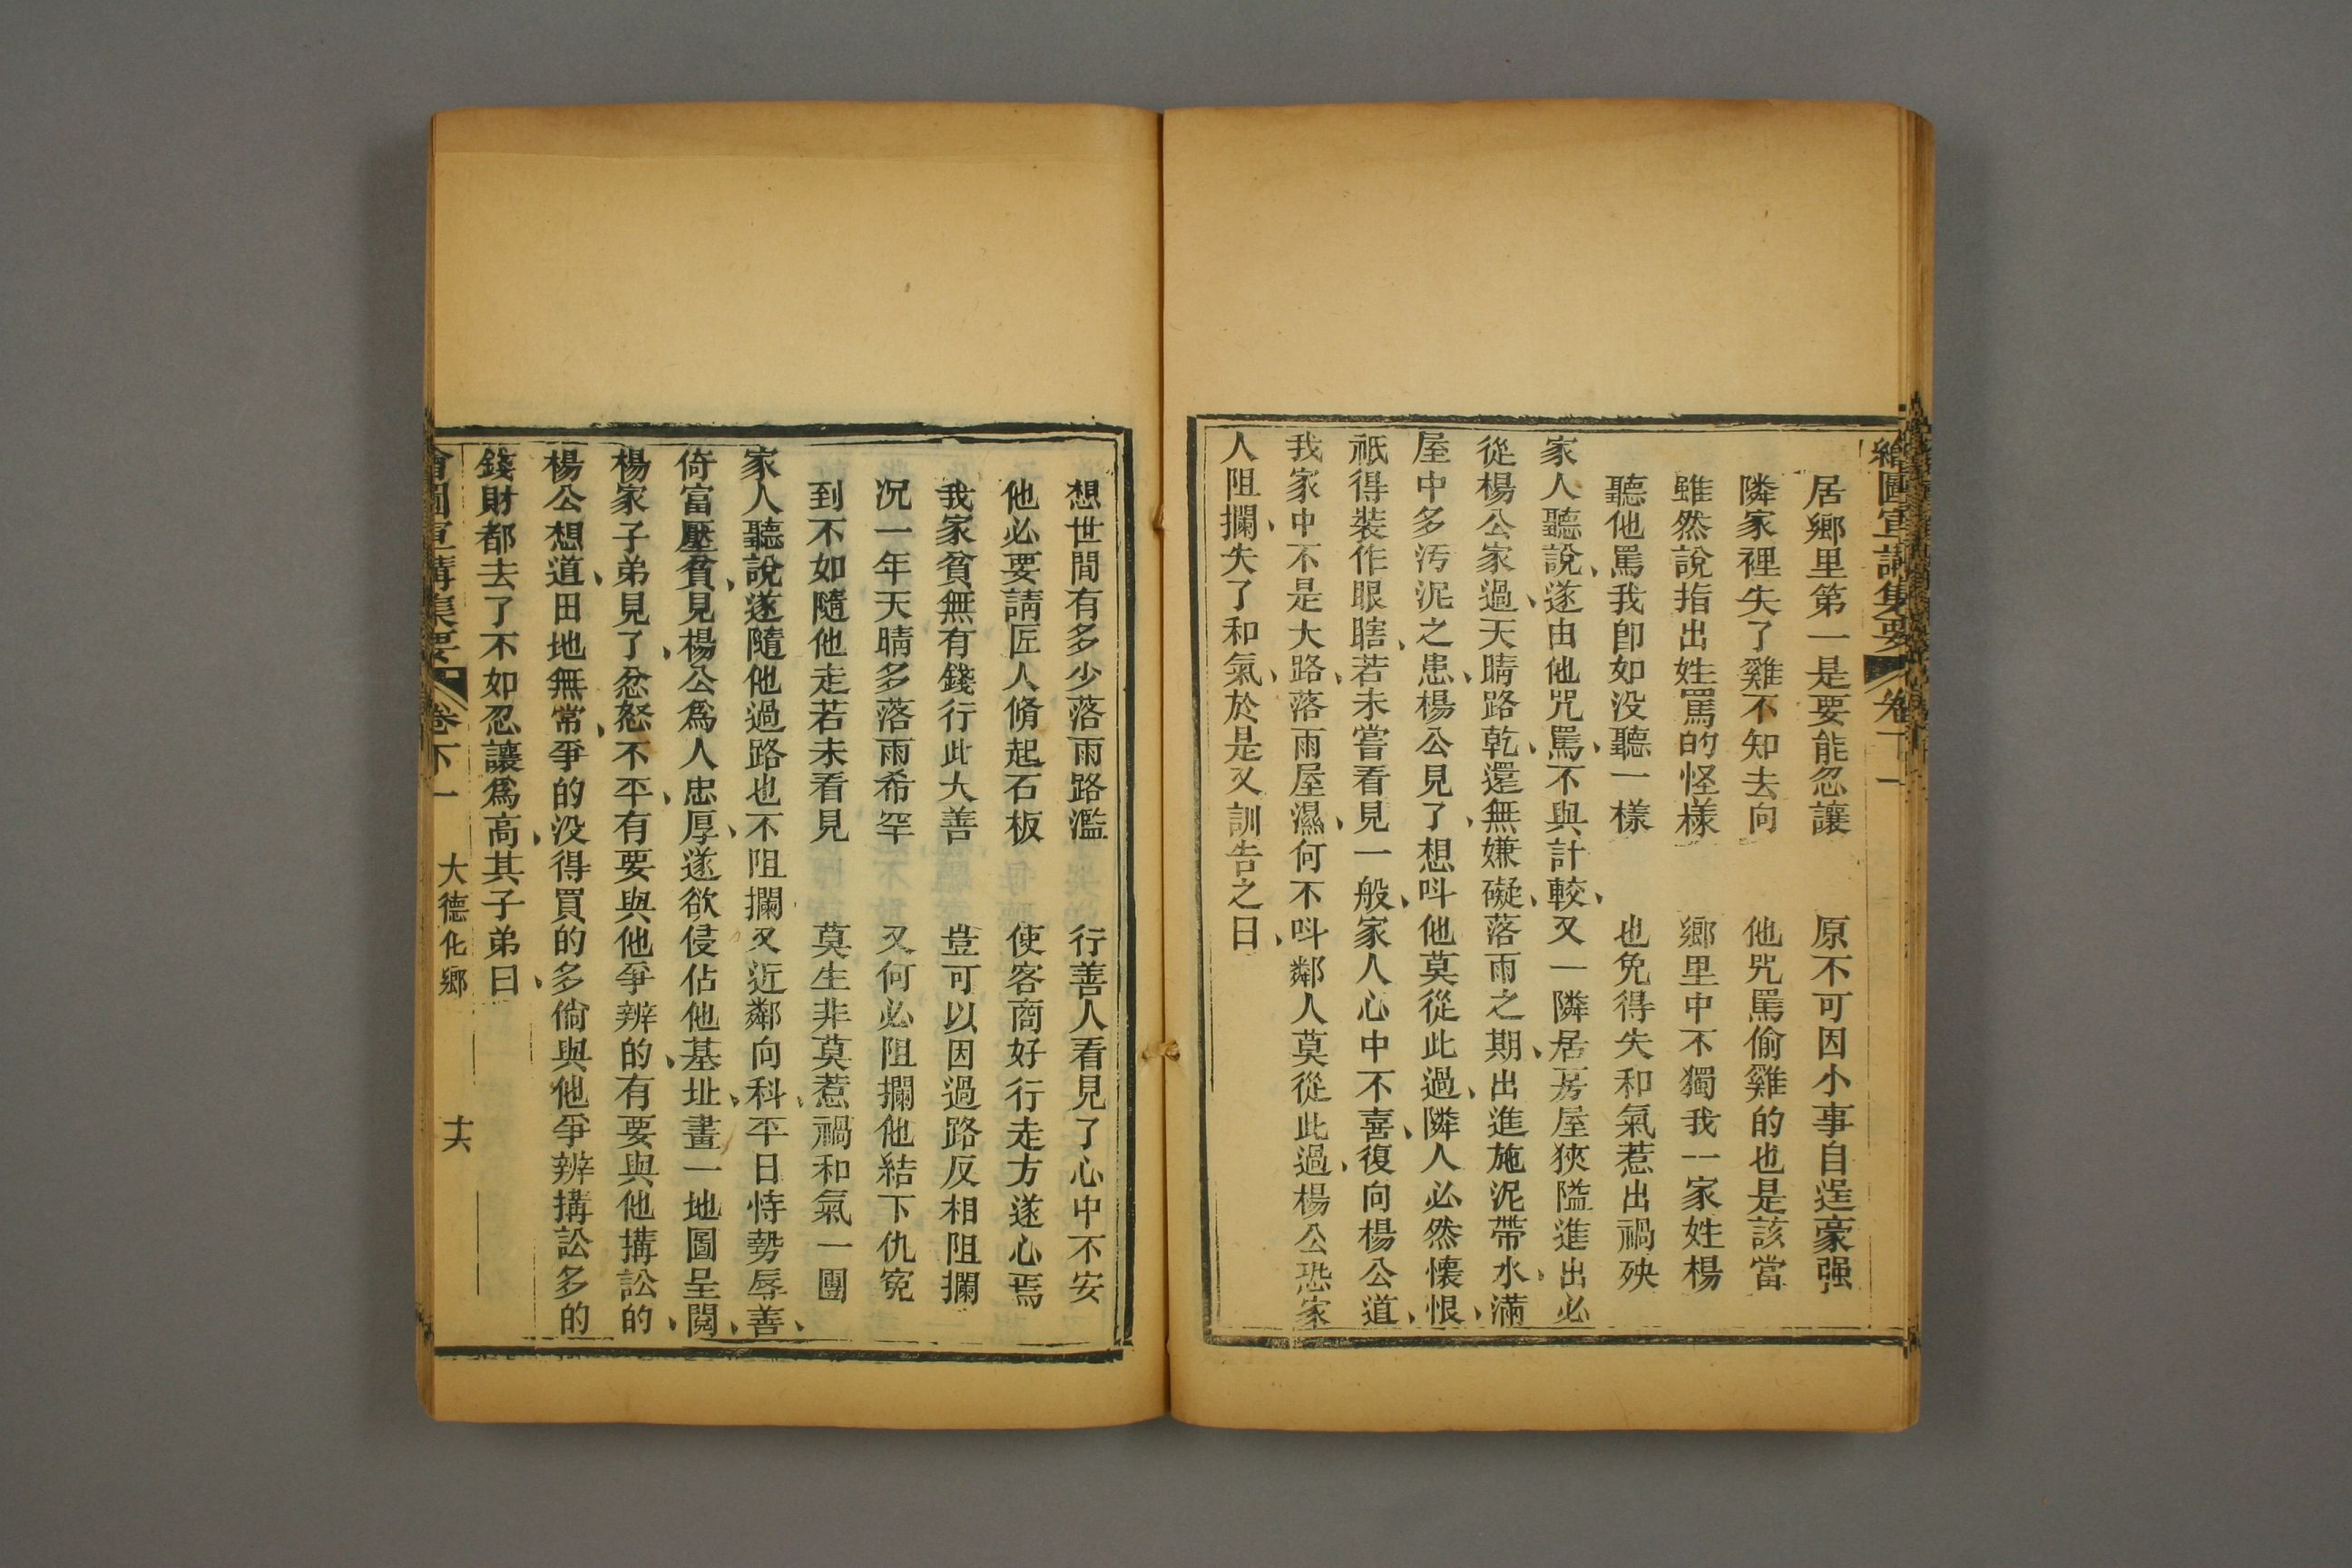 繪圖宣講集要 卷下一
居鄉里第一是要能忍讓 原不可因小事自逞豪强
隣家裡失了雞不知去向 他咒駡偷雞的也是該當
雖然說指出姓駡的怪樣 鄉里中不獨我一家姓楊
聽他駡我卽如没聽一樣 也免得失和氣惹出禍殃
家人聽說、遂由他咒駡、不與計較、又一隣居房屋狹隘進出必
從楊公家過、天晴路乾、還無嫌礙、落雨之期、出進施泥帶水、滿
屋中多汚泥之患、楊公見了、想呌他莫從此過、隣人必然懷恨、
祇得裝作眼瞎、若未嘗看見一般、家人心中不喜、復向楊公道、
我家中不是大路、落雨屋濕、何不呌鄰人莫從此過、楊公恐家
人阻攔、失了和氣、於是又訓告之曰、
想世間有多少落雨路濫 行善人看見了心中不安
他必要請匠人脩起石板 使客商好行走方遂心焉
我家貧無有錢行此大善 豈可以因過路反相阻攔
况一年天晴多落雨希罕 又何必阻攔他結下仇寃
到不如隨他走若未看見 莫生非莫惹禍和氣一團
家人聽說遂隨他過路也不阻攔又近鄰向科、平日恃勢辱善、
倚富壓貧、見楊公爲人忠厚、遂欲侵佔他基址、畫一地圖呈閱、
楊家子弟見了、忿怒不平、有要與他爭辨的、有要與他搆訟的、
楊公想道、田地無常、爭的没得買的多倘與他爭辨搆訟多的
錢財都去了不如忍讓爲高、其子弟曰、
會圖宣講集要 卷下一 大德化鄉 十六